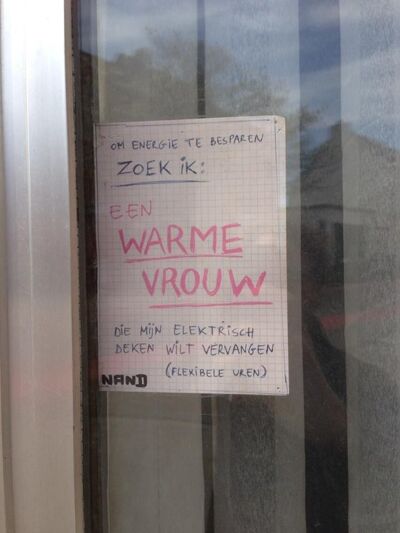 OM ENERGIE TE BESPAREN
ZOEK iK:
EEN
WARME
VROUW
DIE MijN ELEKTRISCH
DEKEN WILT VERVANGEN
(FLEXIBELE UREN)
NAND